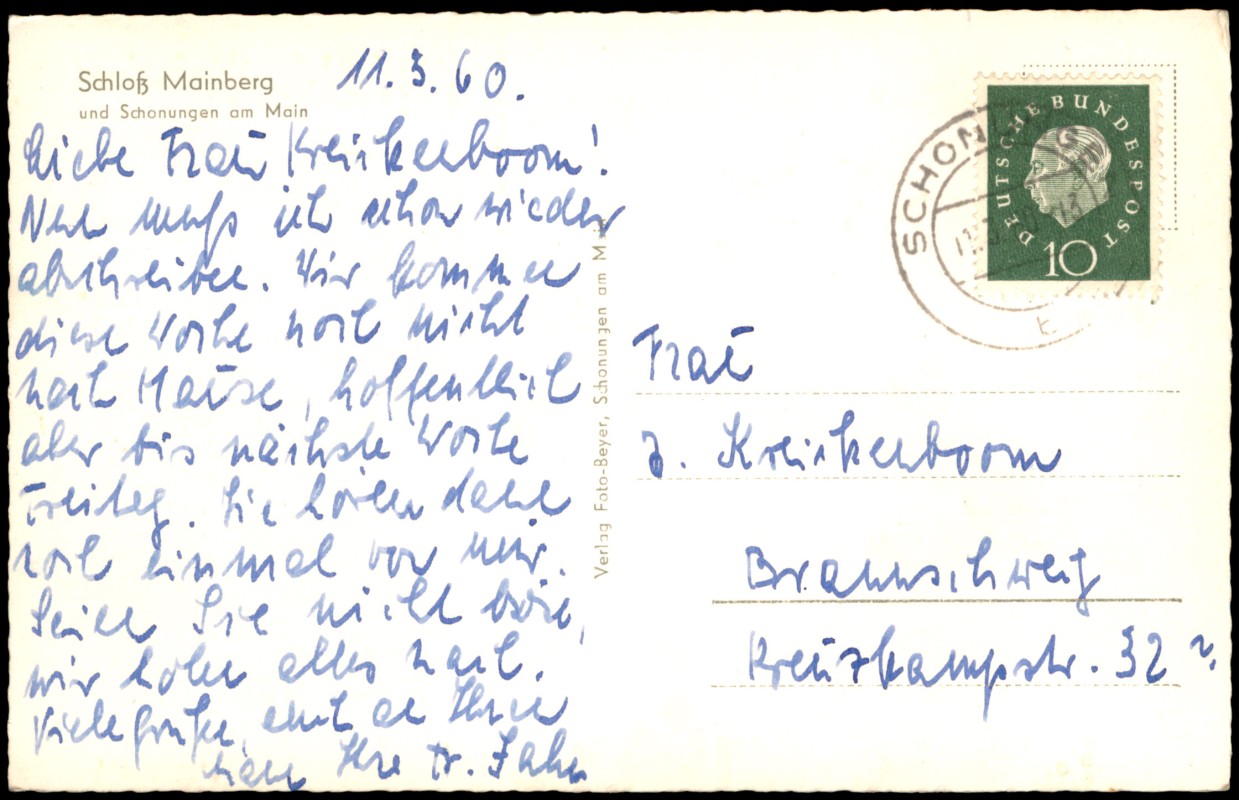 Schloß Mainberg
und Schonungen am Main
11.3.60.
Liebe Frau Kreikenboom!
Nun muß ich schon wieder
abschreiben. Wir kommen
diese Woche noch nicht
nach Hause, hoffentlich
aber bis nächste Woche
Freitag. Sie hören dann
noch einmal von mir.
Seien Sie nicht böse,
wir holen alles nach.
Viele Grüße, auch an Ihren
Ihre Fr. Jahn
Verlag Foto-Beyer, Schonungen am M
DEUTSCHE BUNDESPOST
10
SCHON
Frau
J. Kreikenboom
Braunschweig
Kreuzkampstr. 32